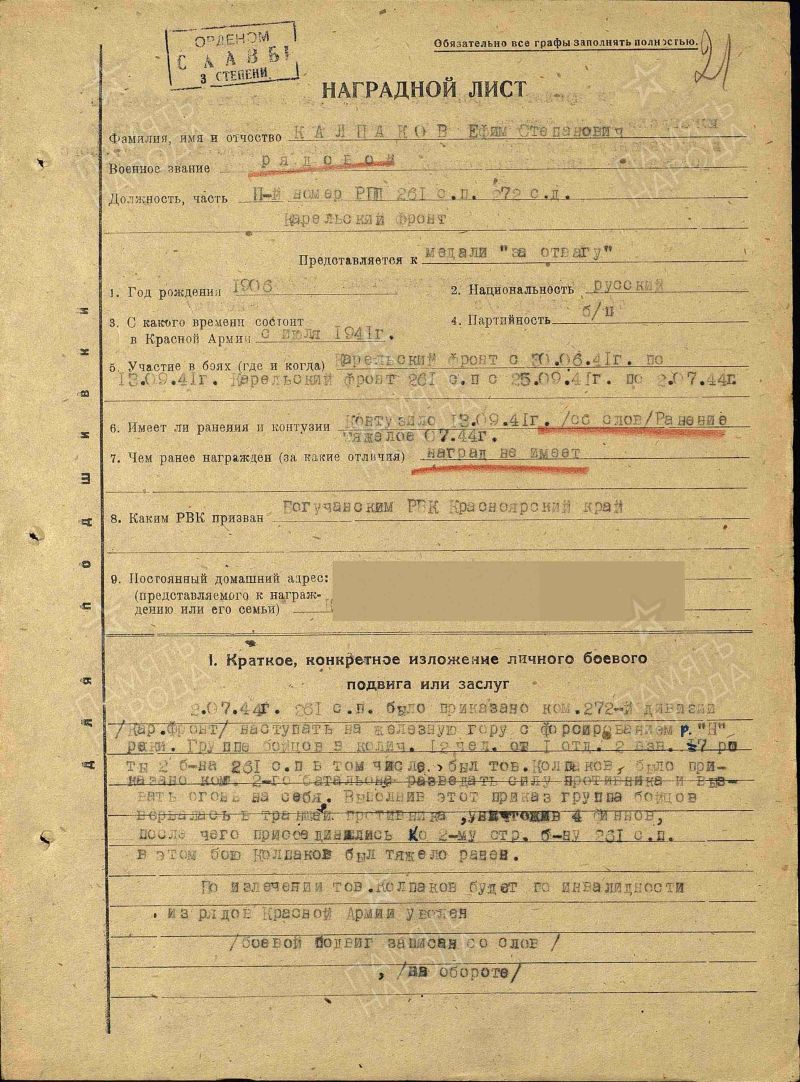 ОРДЕНОМ
СЛАВЫ
3 СТЕПЕНИ
Обязательно все графы заполнять полностью.
21
НАГРАДНОЙ ЛИСТ
Фамилия, имя и отчество КАЛПАКОВ Ефим Степанович
Военное звание рядовой
Должность, часть П-й номер РПП 261 с.п. 272 с.д.
Карельский фронт
Представляется к медали "за отвагу"
1. Год рождения 1906
2. Национальность русский
3. С какого времени состоит
в Красной Армии с июля 1941г.
4. Партийность б/п
5. Участие в боях (где и когда) Карельский фронт с 30.06.41г. по
13.09.41г. Карельский фронт 261 с.п с 25.09.41г. по 2.07.44г.
6. Имеет ли ранения и контузии контузило 13.09.41г. /со слов/Ранение
тяжелое 07.44г.
7. Чем ранее награжден (за какие отличия) наград не имеет
8. Каким РВК призван Богучанским РВК Красноярский край
9. Постоянный домашний адрес:
(представляемого к награж-
дению или его семьи)
Для подшивки
I. Краткое, конкретное изложение личного боевого
подвига или заслуг
2.07.44г. 261 с.п. было приказано ком.272-й дивизии
/Кар.Фронт/ наступать на железную гору с форсированием р."Н"
реки. Группе бойцов в колич. 12 чел. от 1 отд. 2 взв. 7 ро
ты 2 б-на 261 с.п в том числе был тов.Колпаков, было при-
казано ком. 2-го батальона разведать силу противника и выз-
вать огонь на себя. Выполнив этот приказ группа бойцов
ворвалась в траншеи противника ,уничтожив 4 финнов,
после чего присоединились ко 2-му стр. б-ну 261 с.п.
в этом бою Колпаков был тяжело ранен.
По излечении тов.Колпаков будет по инвалидности
из рядов Красной Армии уволен
/боевой подвиг записан со слов /
, /на обороте/
ПАМЯТЬ НАРОДА